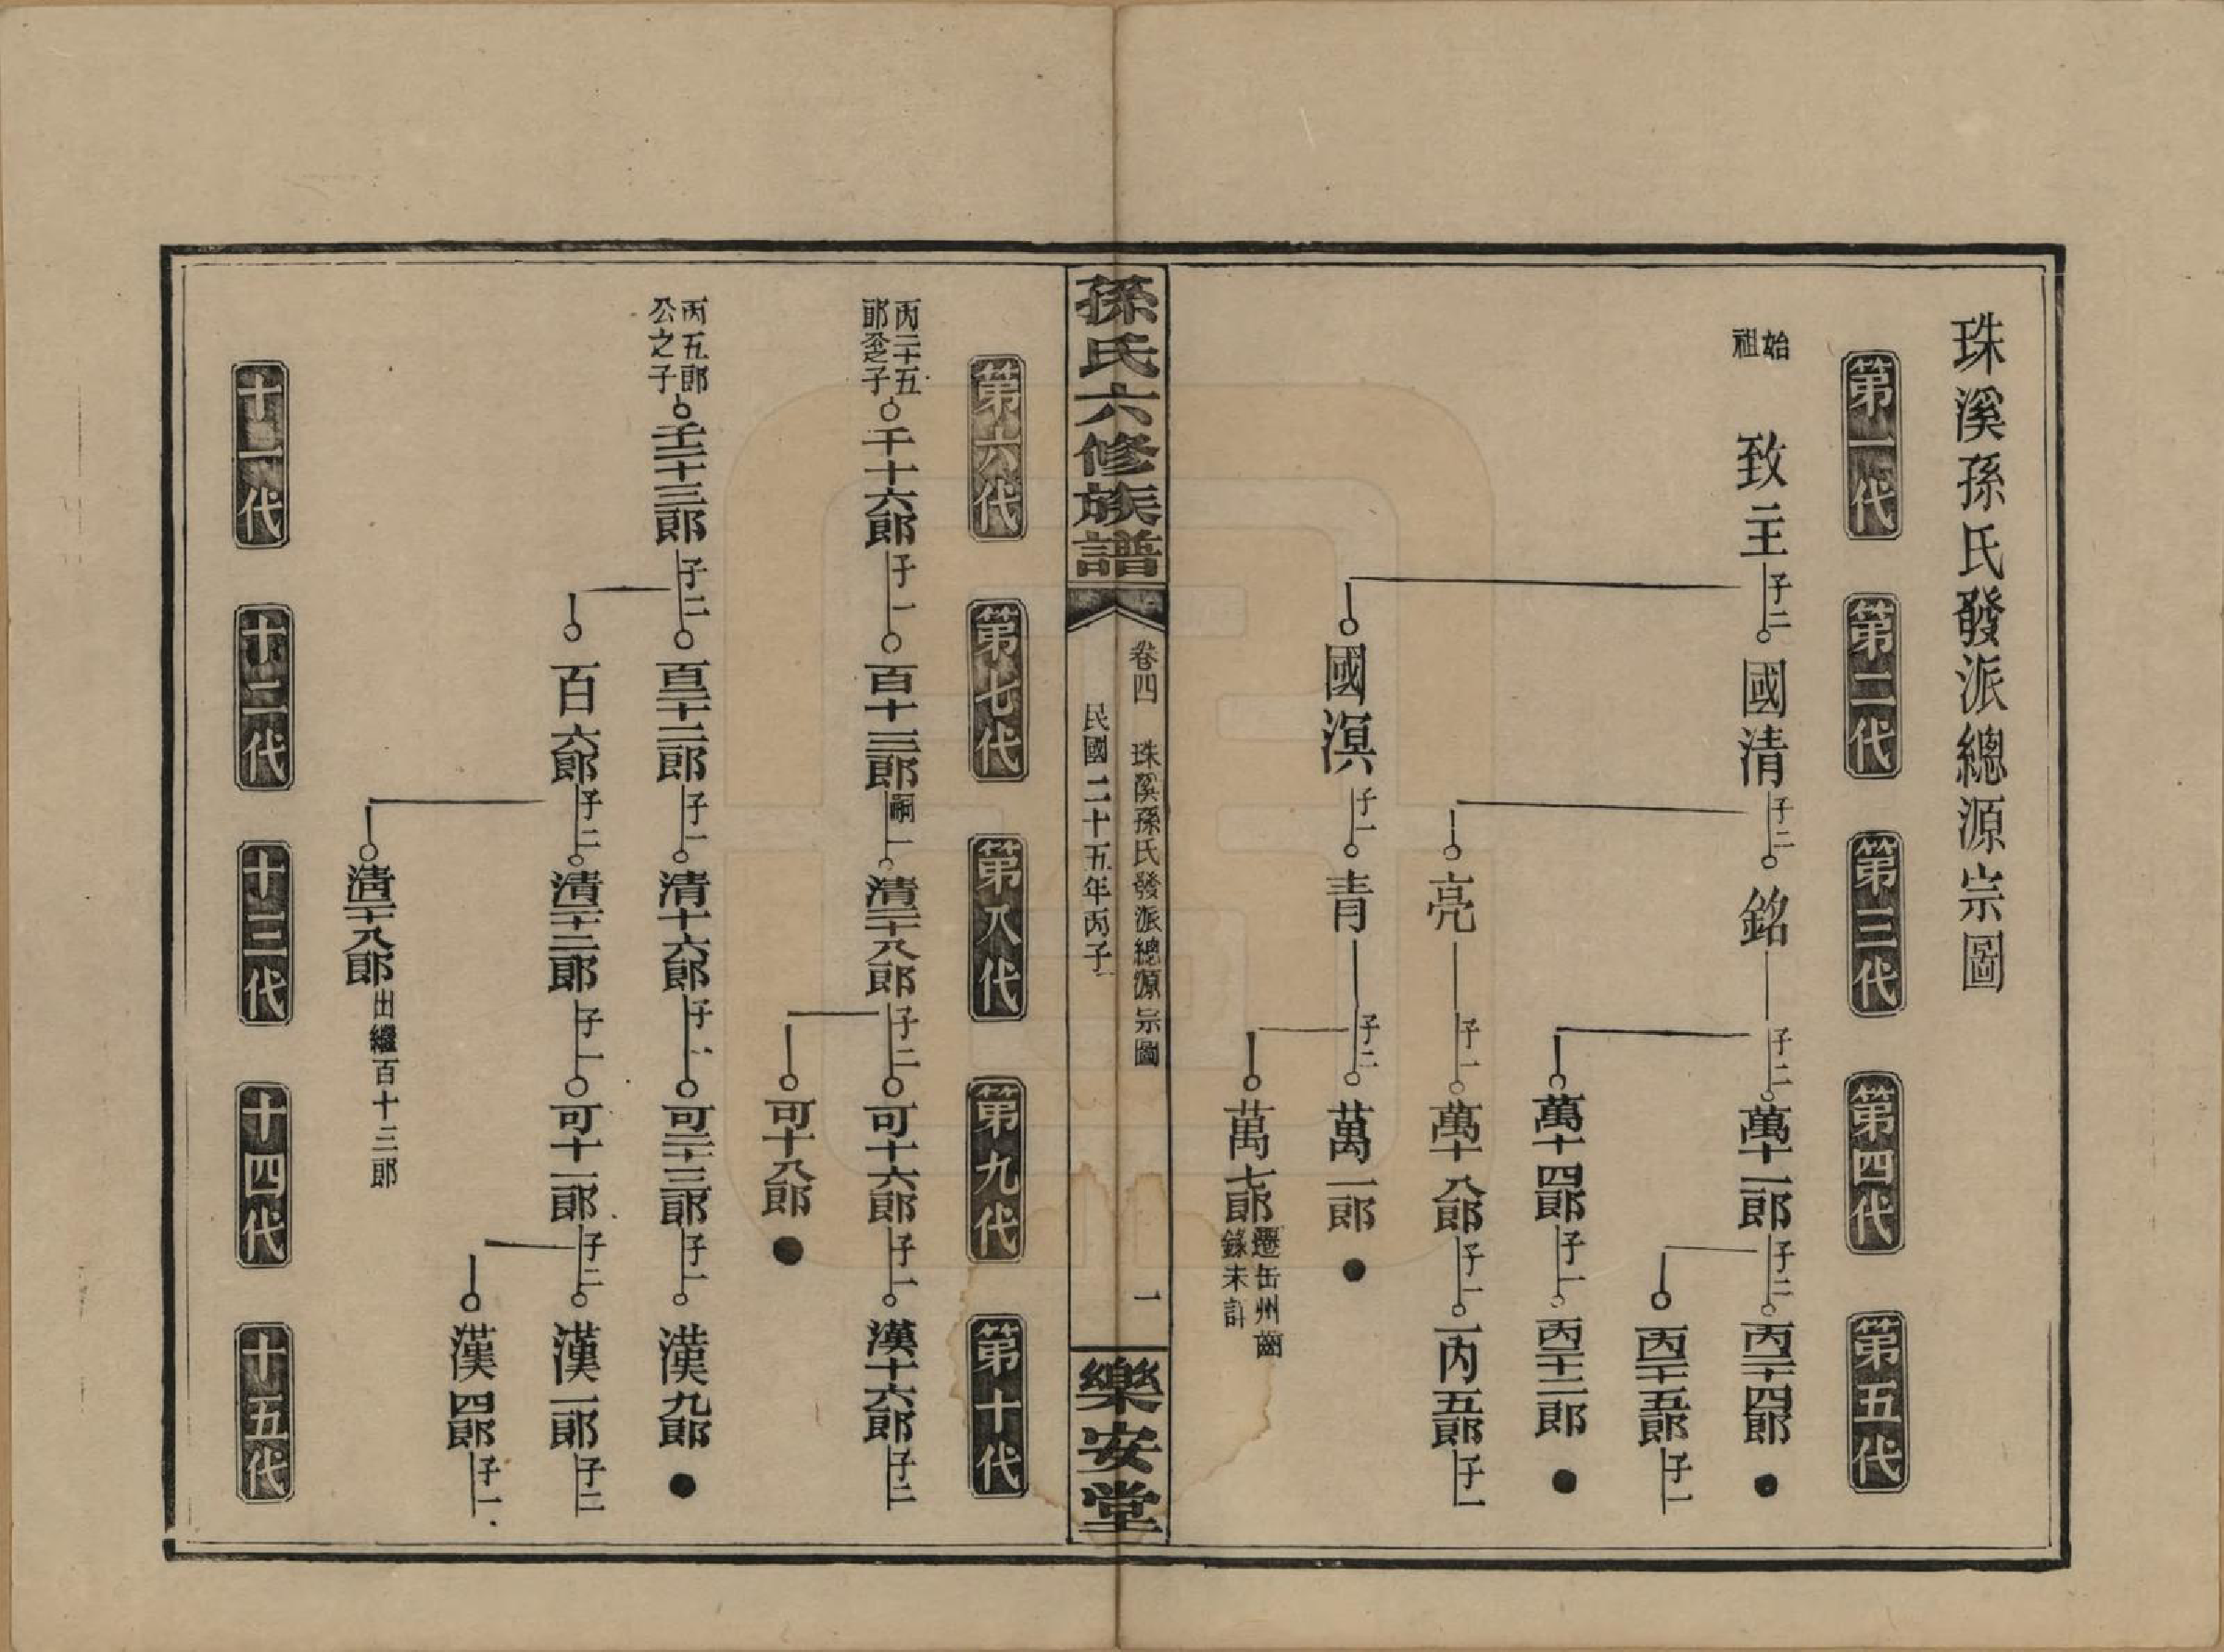 珠溪孫氏發派總源宗圖
第一代
第二代
第三代
第四代
第五代
始祖
致主 子二
國清 子二
銘 子二
萬十一郎 子二
丙二十四郎 ●
丙二十五郎 子一
萬十四郎 子一
丙三十二郎 ●
亮 子一
萬十八郎 子一
丙五郎 子一
國溟 子一
青 子二
萬一郎 ●
萬七郎 遷岳州
錄未詳
孫氏六修族譜
卷四 珠溪孫氏發派總源宗圖 一
民國二十五年丙子
樂安堂
第六代
第七代
第八代
第九代
第十代
丙二十五
郎公之子
千十六郎 子一
百十三郎 嗣一
清二十八郎 子二
可十六郎 子一
漢十六郎 子二
可十八郎 ●
丙五郎
公之子
壬二十三郎 子二
百二十二郎 子一
清十六郎 子一
可二十三郎 子一
漢九郎 ●
百六郎 子二
清二十二郎 子一
可十一郎 子二
漢一郎 子二
漢四郎 子一
清二十八郎 出繼百十三郎
十一代
十二代
十三代
十四代
十五代